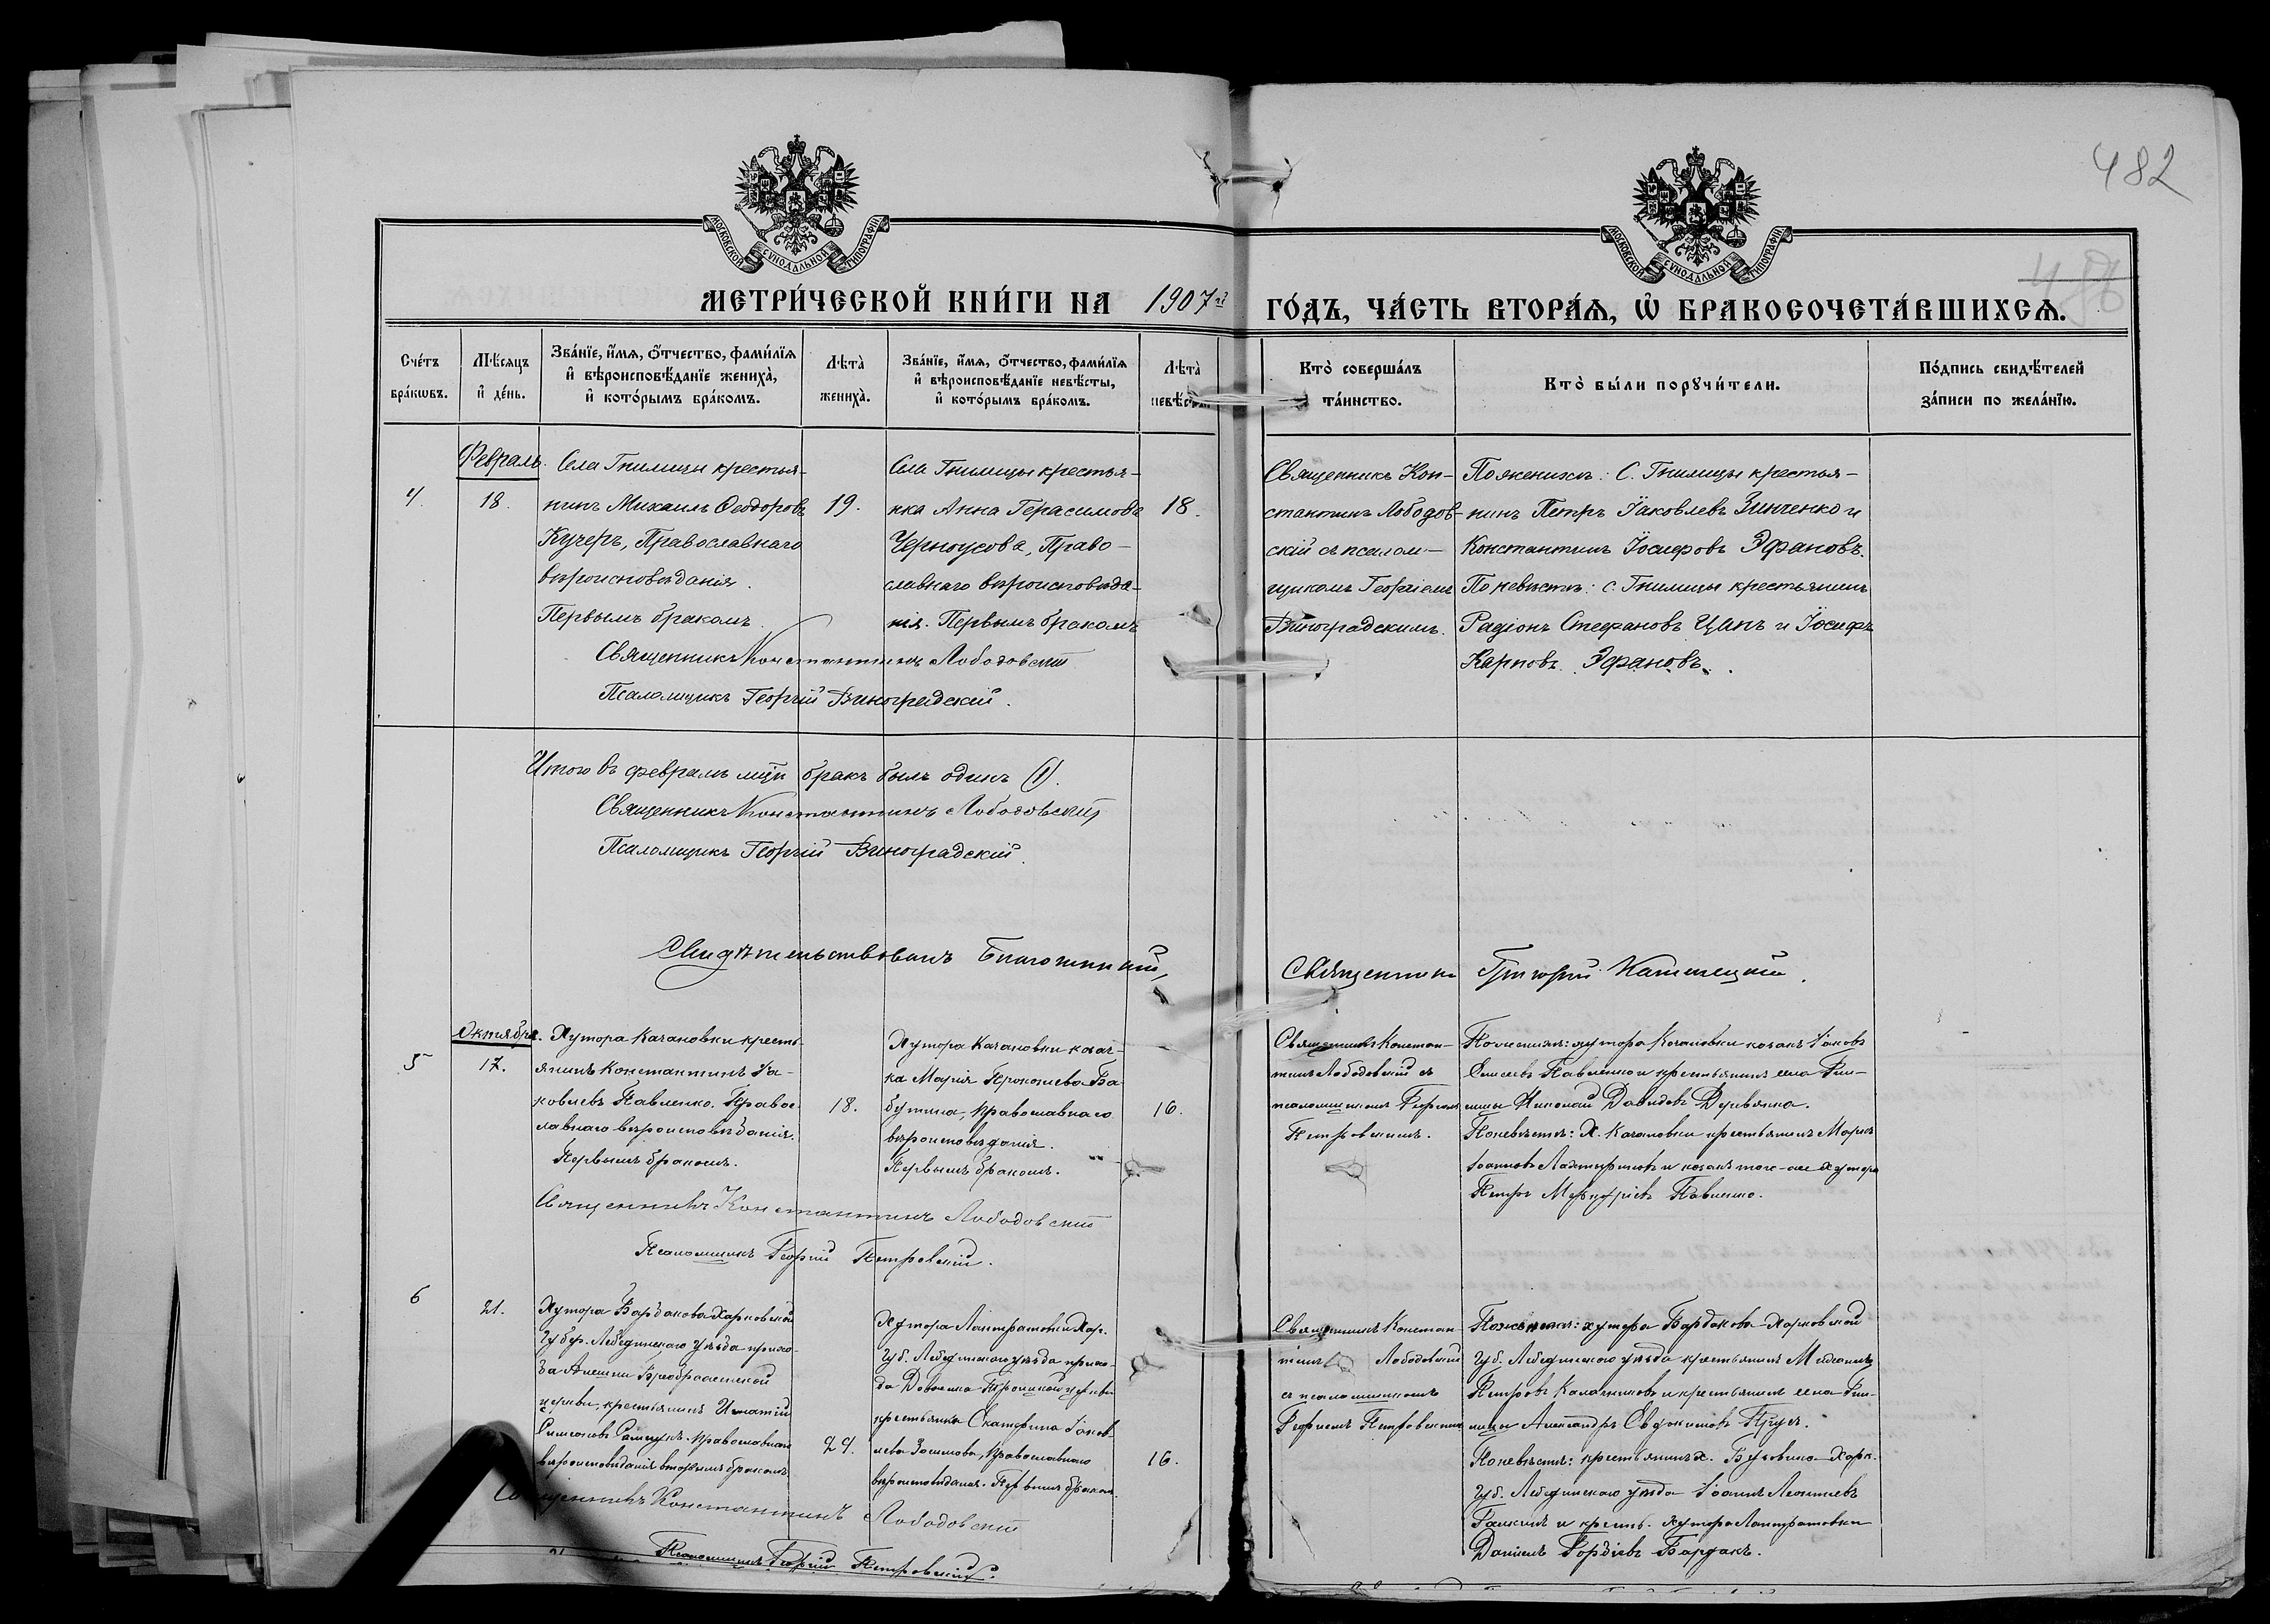 482
МОСКОВСКОЙ СѴНОДАЛЬНОЙ ТИПОГРАФІИ
МОСКОВСКОЙ СѴНОДАЛЬНОЙ ТИПОГРАФІИ
МЕТРИ́ЧЕСКОЙ КНИ́ГИ НА 1907й ГО́ДЪ, ЧА́СТЬ ВТОРА́Ѧ, Ѽ БРАКОСОЧЕТА́ВШИХСѦ.
Сче́тъ
бра́кѡвъ.
Мѣ́сяцъ
и҆ де́нь.
Зва́нїе, и҆́мѧ, ѻ҆́тчество, фами́лїѧ
и҆ вѣроисповѣ́данїе жениха̀,
и҆ кото́рымъ бра́комъ.
Лѣта̀
жениха̀.
Зва́нїе, и҆́мѧ, ѻ҆́тчество, фами́лїѧ
и҆ вѣроисповѣ́данїе невѣ́сты,
и҆ кото́рымъ бра́комъ.
Лѣта̀
невѣ́сты.
Кто̀ соверша́лъ
та́инство.
Кто̀ бы́ли порꙋчи́тели.
По́дпись свидѣ́телей
за́писи по жела́нїю.
4.
Февраль.
18.
Села Гнилицы крестья-
нинъ Михаилъ Ѳеодоровъ
Кучеръ, Православнаго
вѣроисповѣданія.
Первымъ бракомъ.
19.
Села Гнилицы крестья-
нка Анна Герасимова
Черноусова, Право-
славнаго вѣроисповѣда-
нія. Первымъ бракомъ
18.
Священникъ Кон-
стантинъ Лободов-
скій съ псалом-
щикомъ Георгіемъ
Виноградскимъ.
По женихѣ: С. Гнилицы крестья-
нинъ Петръ Іаковлевъ Зинченко и
Константинъ Іосифовъ Эфановъ.
По невѣстѣ: с. Гнилицы крестьянинъ
Радіонъ Стефановъ Цапъ и Іосифъ
Карповъ Эфановъ.
Священникъ Константинъ Лободовскій
Псаломщикъ Георгій Виноградскій.
Итого въ февралѣ м-цѣ бракъ былъ одинъ (1).
Священникъ Константинъ Лободовскій
Псаломщикъ Георгій Виноградскій.
Свидѣтельствовалъ Благочинный,
Священникъ Григорій
5
Октябрь.
17.
Хутора Качановки кресть-
янинъ Константинъ Іа-
ковлевъ Павленко. Правос-
лавнаго вѣроисповѣданія.
Первымъ бракомъ.
18.
Хутора Качановки козач-
ка Марія Прокопіева Ба-
бутина, православнаго
вѣроисповѣданія.
Первымъ бракомъ.
16.
Священникъ Констан-
тинъ Лободовскій съ
псаломщикомъ Георгіемъ
Петровскимъ.
По женихѣ: хутора Качановки козакъ Іаковъ
Елисеевъ Павленко и крестьянинъ села Гни-
лицы Николай Давидовъ Деревянка.
По невѣстѣ: Х. Качановки крестьянинъ Маркъ
Іоанновъ и козакъ того-же хутора
Петръ Меркуріевъ Павленко.
Священникъ Константинъ Лободовскій
Псаломщикъ Георгій Петровскій.
6
21.
Хутора Бардакова Харьковской
Губер. Лебединскаго уѣзда прихо-
да Преображенской
церкви, крестьянинъ Игнатій
Симеоновъ православнаго
вѣроисповѣданія вторымъ бракомъ.
24.
Хутора Лантратовки Хар.
Губ. Лебединскаго уѣзда прихо-
да Троицкой церкви
крестьянка Екатерина Іаков-
лева православнаго
вѣроисповѣданія. Первымъ бракомъ.
16.
Священникъ Констан
тинъ Лободовскій
съ псаломщикомъ
Георгіемъ Петровскимъ
По женихѣ: хутора Бардакова Харьковской
Губ. Лебединскаго уѣзда крестьянинъ
Петровъ Калашниковъ и крестьянинъ села Гни-
лицы Александръ Евдокимовъ
По невѣстѣ: крестьянинъ х. Харьк.
Губ. Лебединскаго уѣзда Іоаннъ Леонтіевъ
Галкинъ и кресть. хутора Лантратовки
Даніилъ Гордіевъ Бардакъ.
Священникъ Константинъ Лободовскій
Псаломщикъ Георгій Петровскій.